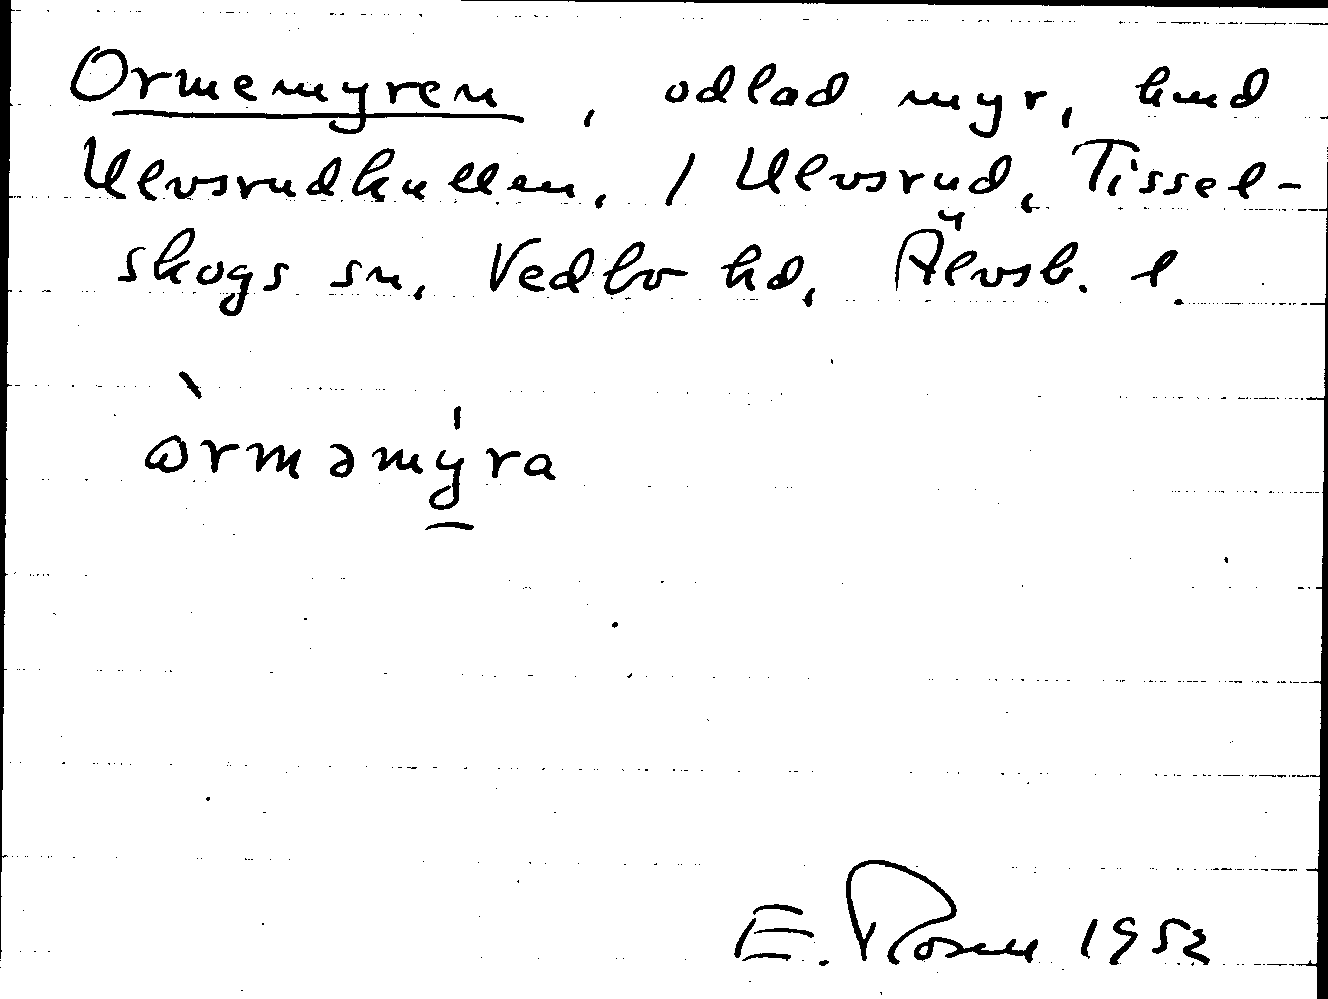 Ormemyren, odlad myr, hmd
Ulvsrudkullen, / Ulvsrud, Tissel-
skogs sn, Vedbo hd, Älvsb. l.
òrməmýra
E. Rosen 1952